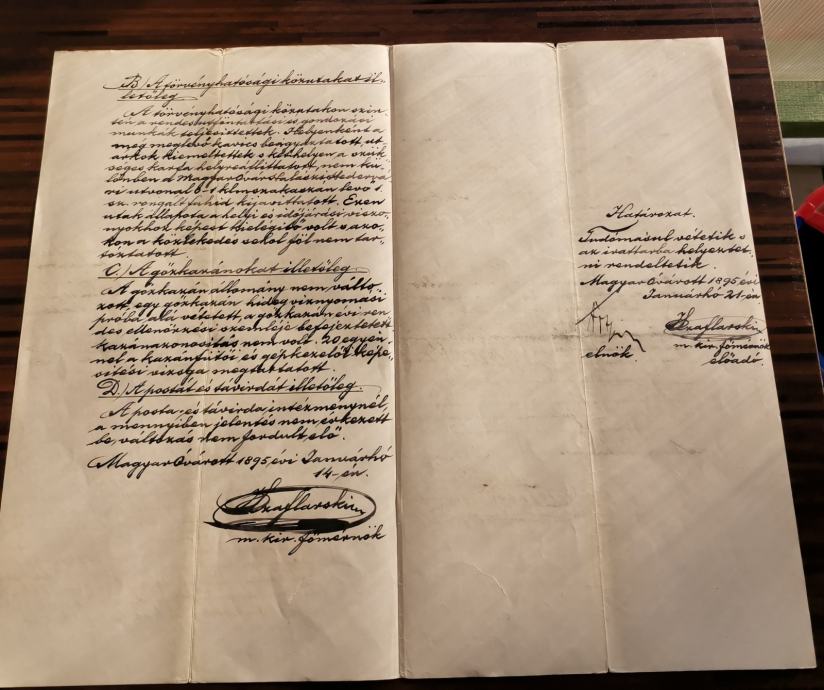 B./ A törvényhatósági közutakat il-
letőleg
A törvényhatósági közutakon szin-
tén a rendes útfentartási és gondozási
munkák teljesittettek. Helyenként a
még meglevő kavics beágyaztatott, út
árkok kiemeltettek s két helyen a szük-
séges karfa helyreállíttatott, nem kü-
lönben a Magyar Óvár
ri útvonal 0-1 klm szakaszán levő 1.
sz. rongált fahid kijavíttatott. Ezen
utak állapota a helyi és időjárási viszo-
nyokhoz képest kielégitő volt s azo-
kon a közlekedés sehol föl nem tar-
tóztatott
C./ A gőzkazánokat illetőleg.
A gőzkazán állomány nemválto-
zott, egy gőzkazán hideg viznyomási
próba alá vétetett, a gőzkazán évi ren-
des ellenőrzési szemléje befejeztetett
kazánazonositás nem volt. 20 egyén-
nél a kazánfűtői és gépkezelői képe-
sitési vizsga megtartatott.
D./ A postát és távirdát illetőleg.
A posta és távirda intézménynél,
a mennyiben jelentés nem érkezett
be, változás nem fordult elő.
Magyar Óvárott 1895 évi Januárhó
14-én.
Szaflarski
m. kir. főmérnök
Határozat.
Tudomásul vétetik s
az irattárba helyeztet-
ni rendeltetik.
Magyar Óvárott 1895 évi
Januárhó 21-én
elnök.
Szaflarski
m. kir. főmérnök
előadó.